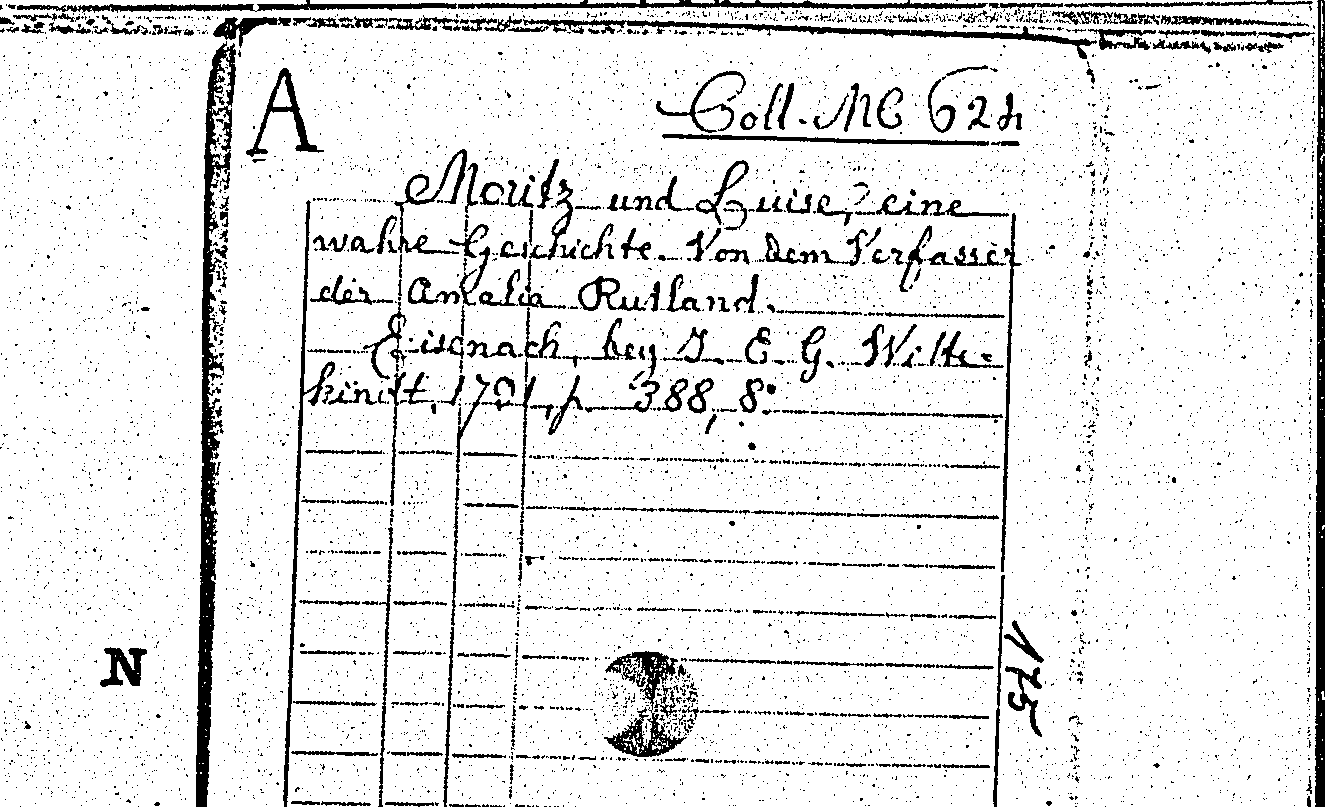 A
Coll. MC 62h
Moritz und Luise, eine
wahre Geschichte. Von dem Verfasser
der Amalia Rutland.
Eisenach, bey J. E. G. Witte-
kindt, 1791, p. 388, 8°
N
175